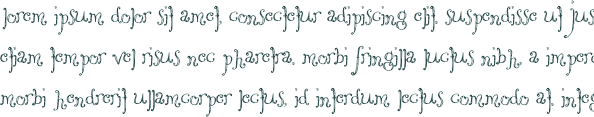 lorem ipsum dolor sit amet, consectetur adipiscing elit. suspendisse ut jus
etiam tempor vel risus nec pharetra. morbi fringilla luctus nibh, a imperd
morbi hendrerit ullamcorper lectus, id interdum lectus commodo at. intege